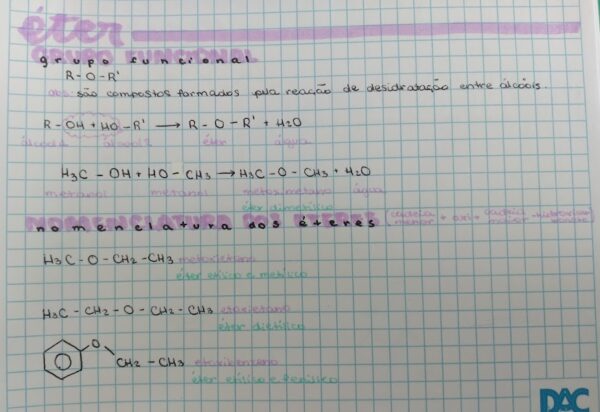 éter
GRUPO FUNCIONAL
grupo funcional
R-O-R'
obs: são compostos formados pela reação de desidratação entre álcoois.
R-OH + HO-R' → R-O-R' + H2O
álcool 1 álcool 2 éter água
H3C-OH + HO-CH3 → H3C-O-CH3 + H2O
metanol metanol metoximetano água
éter dimetílico
NOMENCLATURA DOS ÉTERES
nomenclatura dos éteres (cadeia menor + oxi + cadeia maior + hidrocarboneto)
H3C-O-CH2-CH3 metoxietano
éter etílico e metílico
H3C-CH2-O-CH2-CH3 etoxietano
éter dietílico
O
CH2-CH3 etoxibenzeno
éter etílico e fenílico
DAC